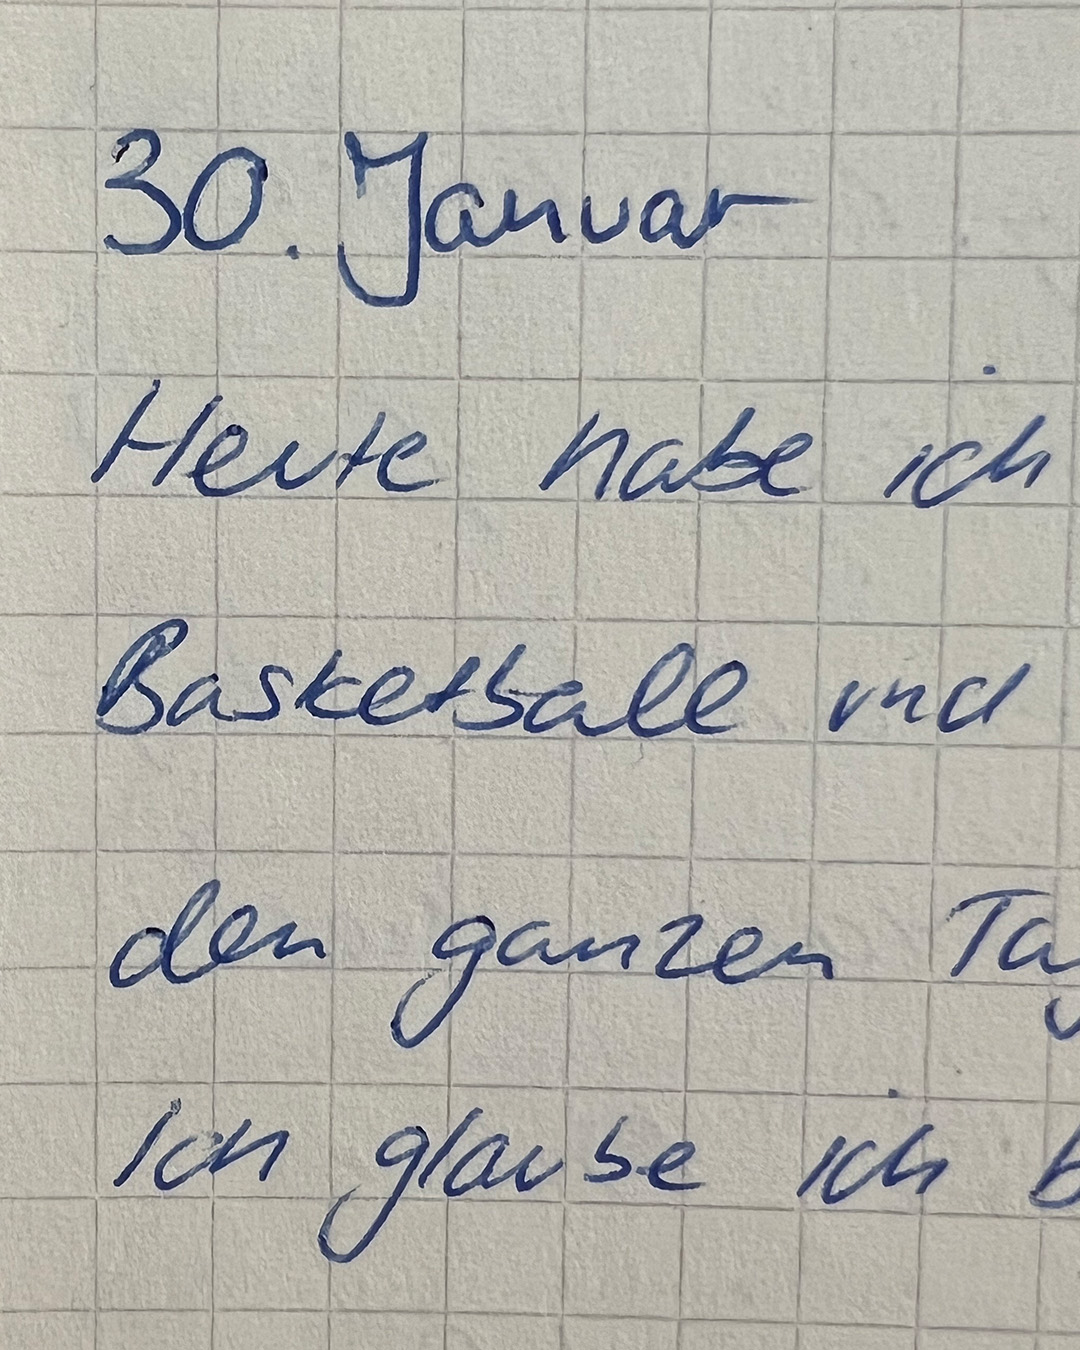 30. Januar
Heute habe ich
Basketball und
den ganzen Tag
Ich glaube ich